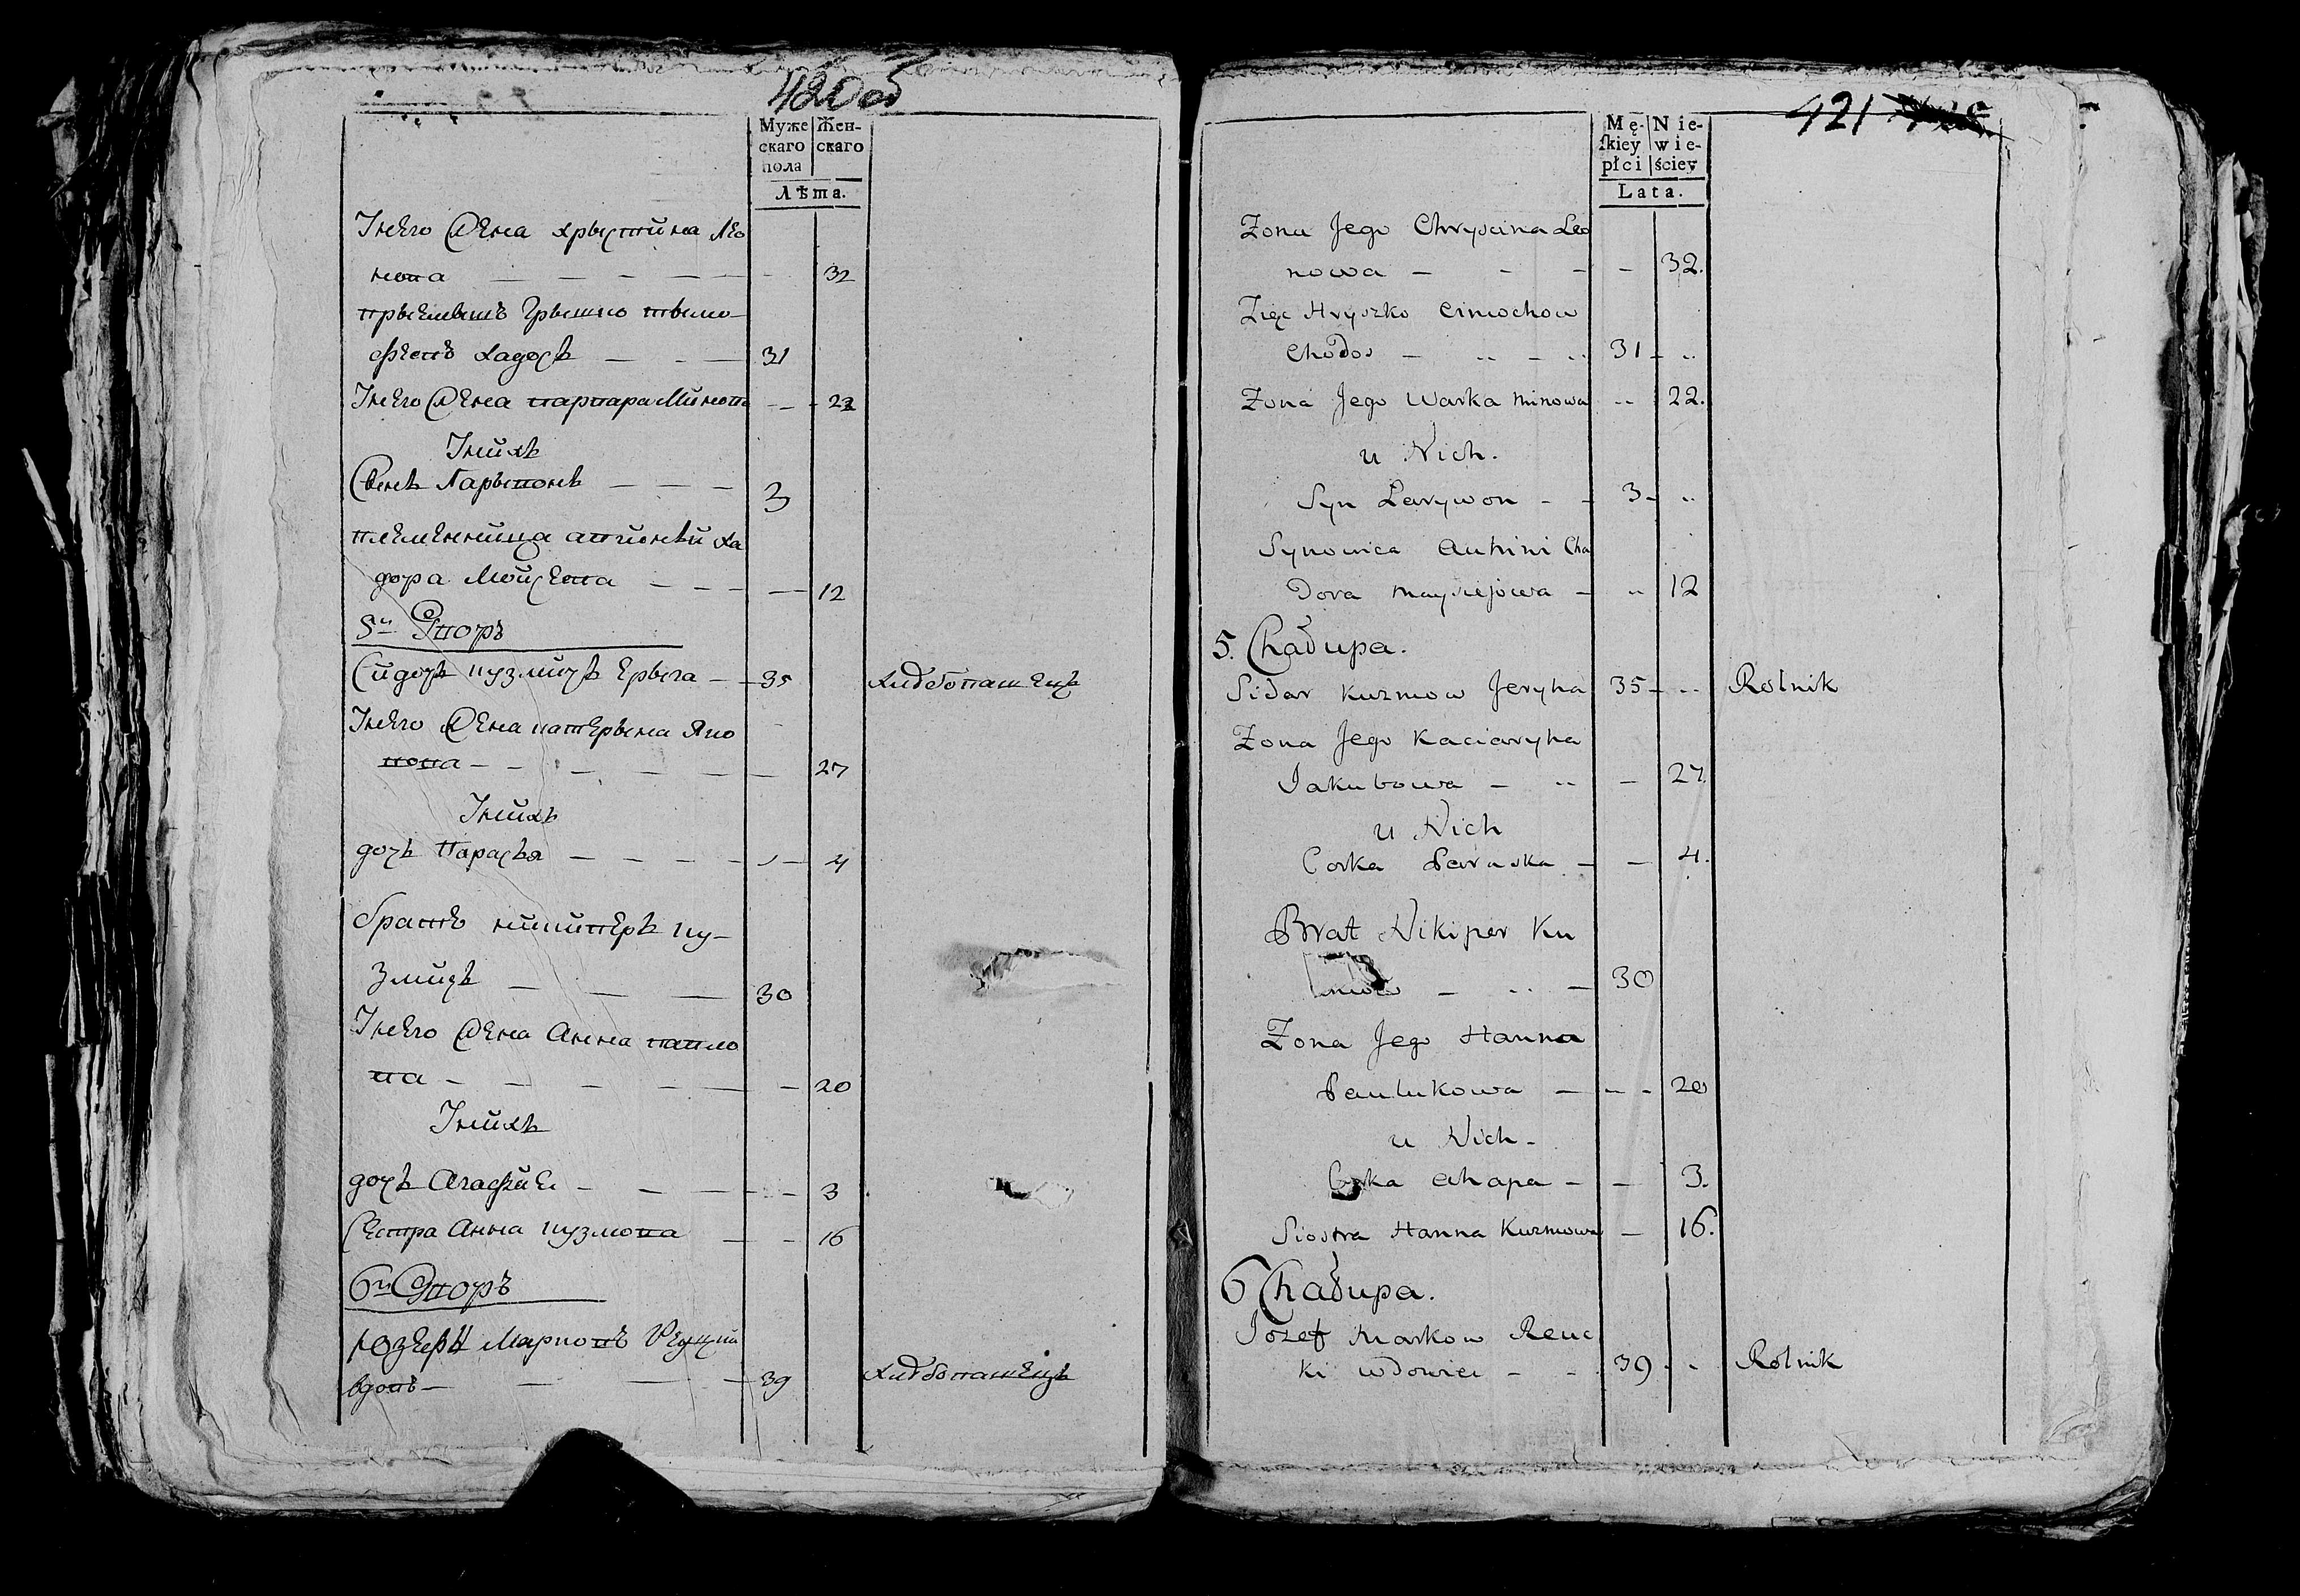 420 об
Муже
скаго
пола
Жен-
скаго
Лѣта.
У него жена хрыстина лео
нова — — — — — 32
прыемышъ грышко тымо-
феевъ хадосъ — — — 31
У него жена варвара Минова — — 22
У нихъ
Сынъ Ларывонъ — — — 3
племенница
дора Мойсева — — — — 12
5й Дворъ
Сидоръ кузмичъ Ерыга — 35 хлебопашецъ
У него жена катерына Яко
вова — — — — — — 27
У нихъ
дочъ Парасъя — — — — — 4
братъ никиперъ ку-
змичъ — — — 30
У него жена Анна павло
ва — — — — — — 20
У нихъ
дочъ Агафия — — — — — 3
Сестра Анна кузмова — — 16
6й Дворъ
Юзефъ Марковъ Реуцки
вдовъ — — — 39 хлебопашецъ
421
Mę-
skiey
płci
Nie-
wie-
ściey
Lata.
Zona Jego Chryscina Leo
nowa — - - — 32.
Zięc Hryszko Cimochow
Chodos — .. — .. 31 — ..
Zona Jego Warka Minowa .. 22.
u Nich.
Syn Larywon - - 3 - ..
Synowica Auhini Cha
dora Maysiejowa — .. 12
5. Chałupa.
Sidor Kuzmow Jeryha 35 - .. Rolnik
Zona Jego Kaciaryha
Jakubowa — .. — 27.
u Nich
Corka Paraska — — 4.
Brat Nikiper Ku
mow — .. — 30
Zona Jego Hanna
Paulukowa — — - 20
u Nich -
Corka Ahapa — — 3.
Siostra Hanna Kuzmowa — 16.
6 Chałupa.
Jozef Markow Reuc
ki wdowiec - - 39 - - Rolnik